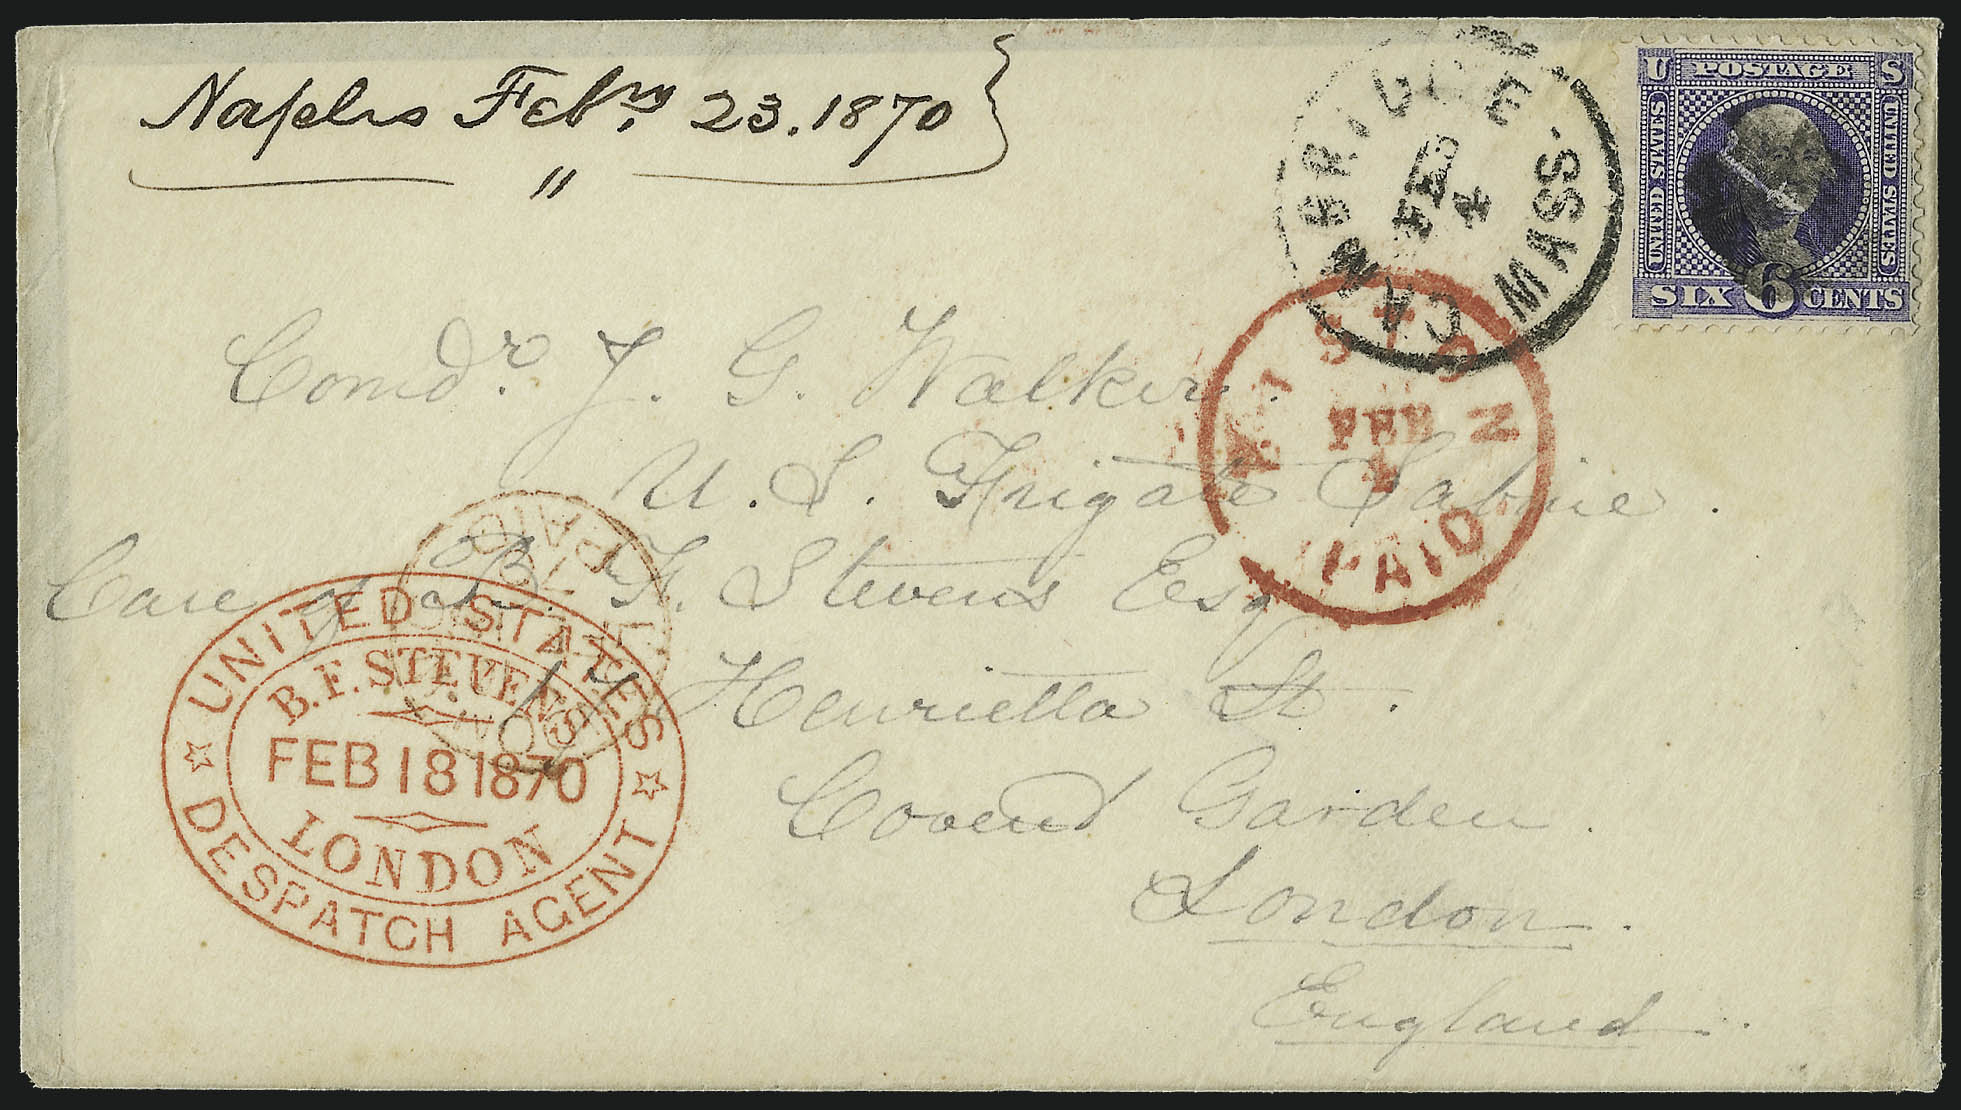 Naples Febry, 23. 1870
CAMBRIDGE MASS.
FEB
4
U POSTAGE S
UNITED STATES
UNITED STATES
SIX 6 CENTS
BOSTON
FEB
4
PAID
Comdr. J. G. Walker.
U. S. Frigate Sabine.
Care of B. F. Stevens Esq
17 Henrietta St.
Covent Garden.
London.
England.
PAID
LONDON
UNITED STATES
B.F. STEVENS
FEB 18 1870
LONDON
DESPATCH AGENT